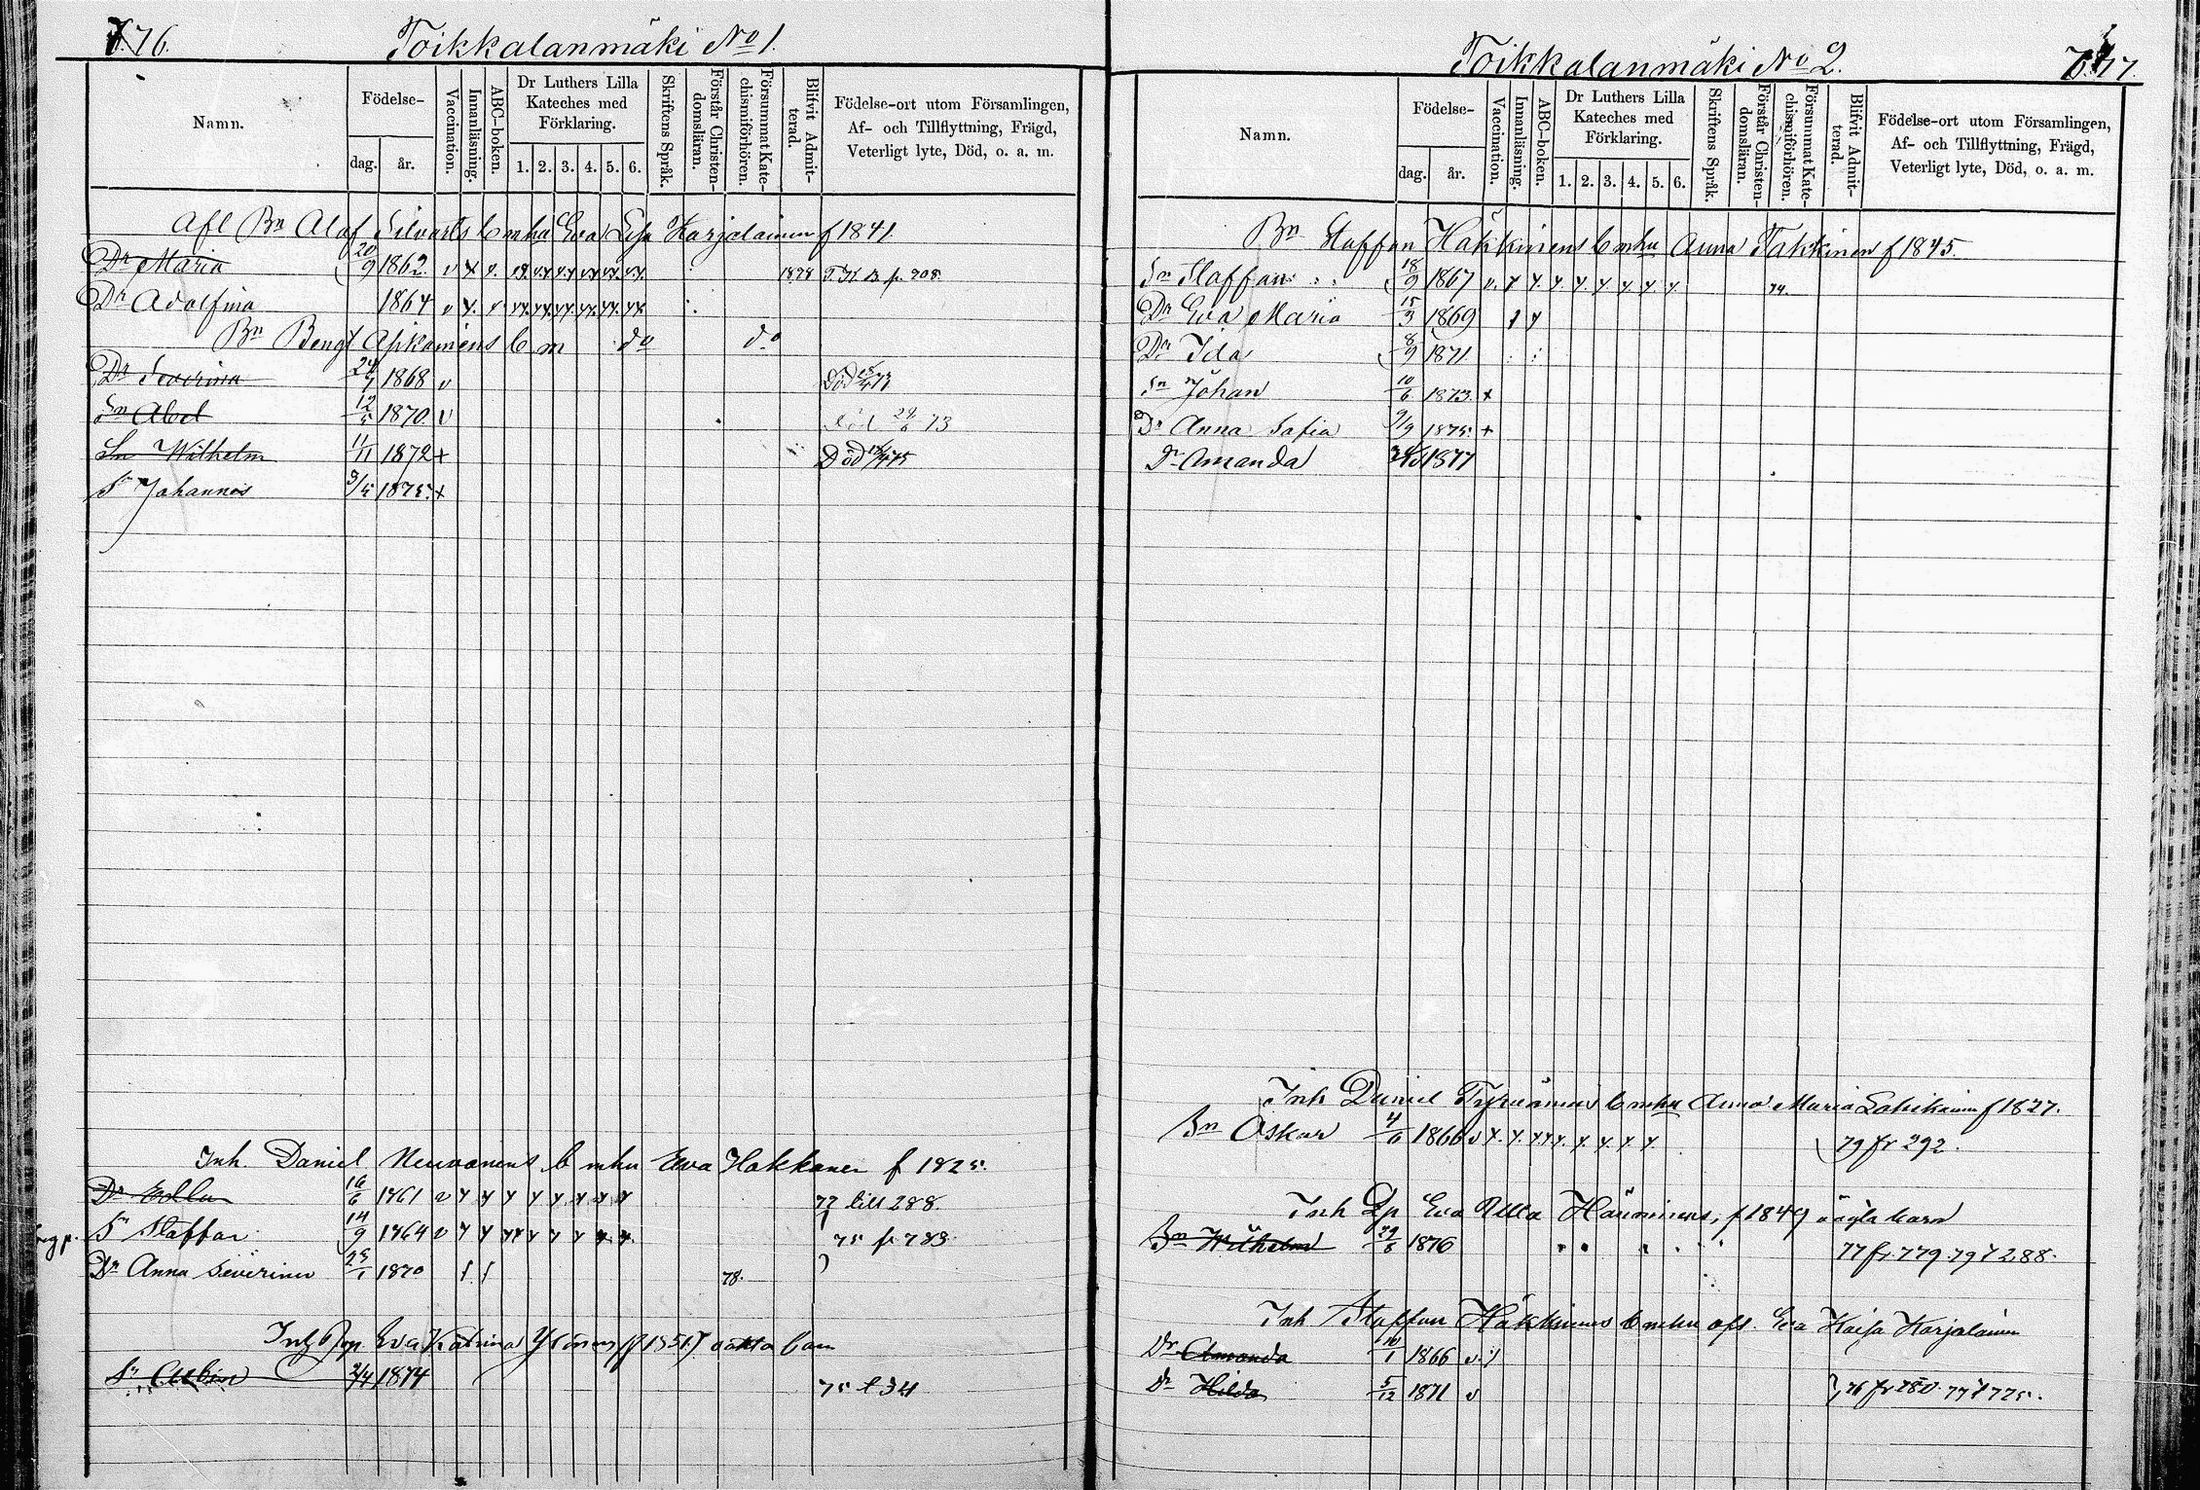 776.
Toikkalanmäki No 1.
Namn.
Födelse-
dag.
år.
Vaccination.
Innanläsning.
ABC-boken.
Dr Luthers Lilla
Kateches med
Förklaring.
1. 2. 3. 4. 5. 6.
Skriftens Språk.
Förstår Christen-
domsläran.
Försummat Kate-
chismiförhören.
Blifvit Admit-
terad.
Födelse-ort utom Församlingen,
Af- och Tillflyttning, Frägd,
Veterligt lyte, Död, o. a. m.
Afl Bn Olof Silvasts b mhu Eva Lisa Karjalainen f 1841
Dr Maria 20/9 1862. v x v. 1878 p. 208.
Dr Adolfina 1864 v x. v
Bn Bengt b m do do
Dr Severina 24/7 1868 v Död
Sn Abel 12/5 1870. v Död 29/6 73
Sn Wilhelm 11/11 1872 + Död 75
Sn Johannes 3/5 1875. +
Inh. Daniel Neuvonens b mhu Eva Hakkanen f 1825.
Dr Ulla 16/6 1861 v 77 till 288.
Sn Staffan 14/9 1864 v 75 fr 783.
Dr Anna Severina 25/1 1870 78.
Inh Pig. Eva Katrina f 1851 oäkta barn
Sn Albin 2/4 1874 75 t 34
777.
Toikkalanmäki No 2.
Namn.
Födelse-
dag.
år.
Vaccination.
Innanläsning.
ABC-boken.
Dr Luthers Lilla
Kateches med
Förklaring.
1. 2. 3. 4. 5. 6.
Skriftens Språk.
Förstår Christen-
domsläran.
Försummat Kate-
chismiförhören.
Blifvit Admit-
terad.
Födelse-ort utom Församlingen,
Af- och Tillflyttning, Frägd,
Veterligt lyte, Död, o. a. m.
Bn Staffan Häkkinens b mhu Anna Takkinen f 1845.
Sn Staffan 18/9 1867 v. 74.
Dr Eva Maria 15/3 1869
Dr Ida 8/9 1871
Sn Johan 10/6 1873. +
Dr Anna Sofia 9/9 1875. +
Dr Amanda 1877
Inh Daniel b mhu Anna Maria f 1827.
Sn Oskar 4/6 1866 v 79 fr 292.
Inh Eva Ulla f 1849 oägta barn
Sn Wilhelm 29/8 1876 77 fr. 779. 79 t 288.
Inh Staffan Häkkinens b mhu afl. Eva Kaisa Karjalainen
Dr Amanda 10/1 1866 v
Dr Hilda 5/12 1871 v 76 fr 780. 77 t 775.